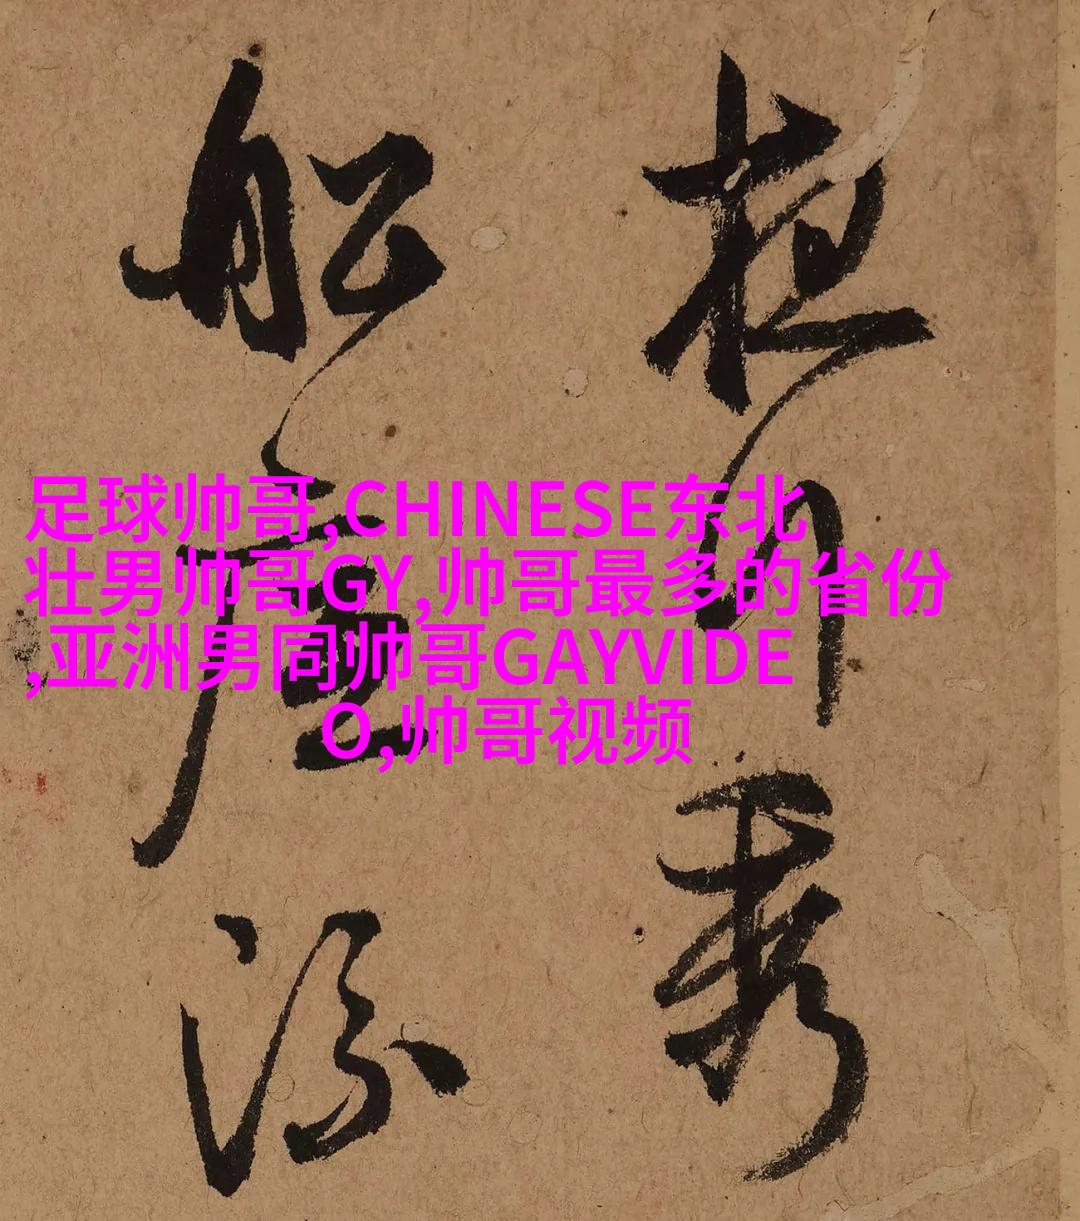 足球帅哥,CHINESE东北
壮男帅哥GY,帅哥最多的省份
,亚洲男同帅哥GAYVIDE
O,帅哥视频
川秀
船